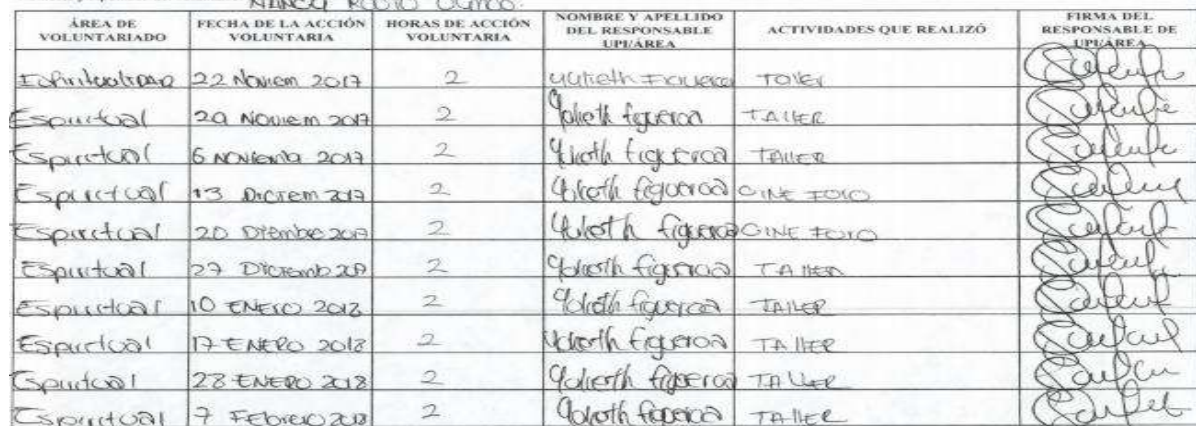 NANCY RUBIO
ÁREA DE VOLUNTARIADO FECHA DE LA ACCIÓN VOLUNTARIA HORAS DE ACCIÓN VOLUNTARIA NOMBRE Y APELLIDO DEL RESPONSABLE UPI/ÁREA ACTIVIDADES QUE REALIZÓ FIRMA DEL RESPONSABLE DE UPI/ÁREA
EspiritualiDAD 22 Noviem 2017 2 Yulieth Figueroa TALLER
Espiritual 29 Noviem 2017 2 Yulieth figueroa TALLER
Espiritual 6 Noviemb 2017 2 Yulieth figueroa TALLER
Espiritual 13 Diciem 2017 2 Yulieth figueroa CINE FORO
Espiritual 20 Diembre 2017 2 Yulieth figueroa CINE FORO
Espiritual 27 Diciemb 2017 2 Yulieth figueroa TALLER
Espiritual 10 ENERO 2018 2 Yulieth figueroa TALLER
Espiritual 17 ENERO 2018 2 Yulieth figueroa TALLER
Espiritual 28 ENERO 2018 2 Yulieth figueroa TALLER
Espiritual 7 Febrero 2018 2 Yulieth figueroa TALLER